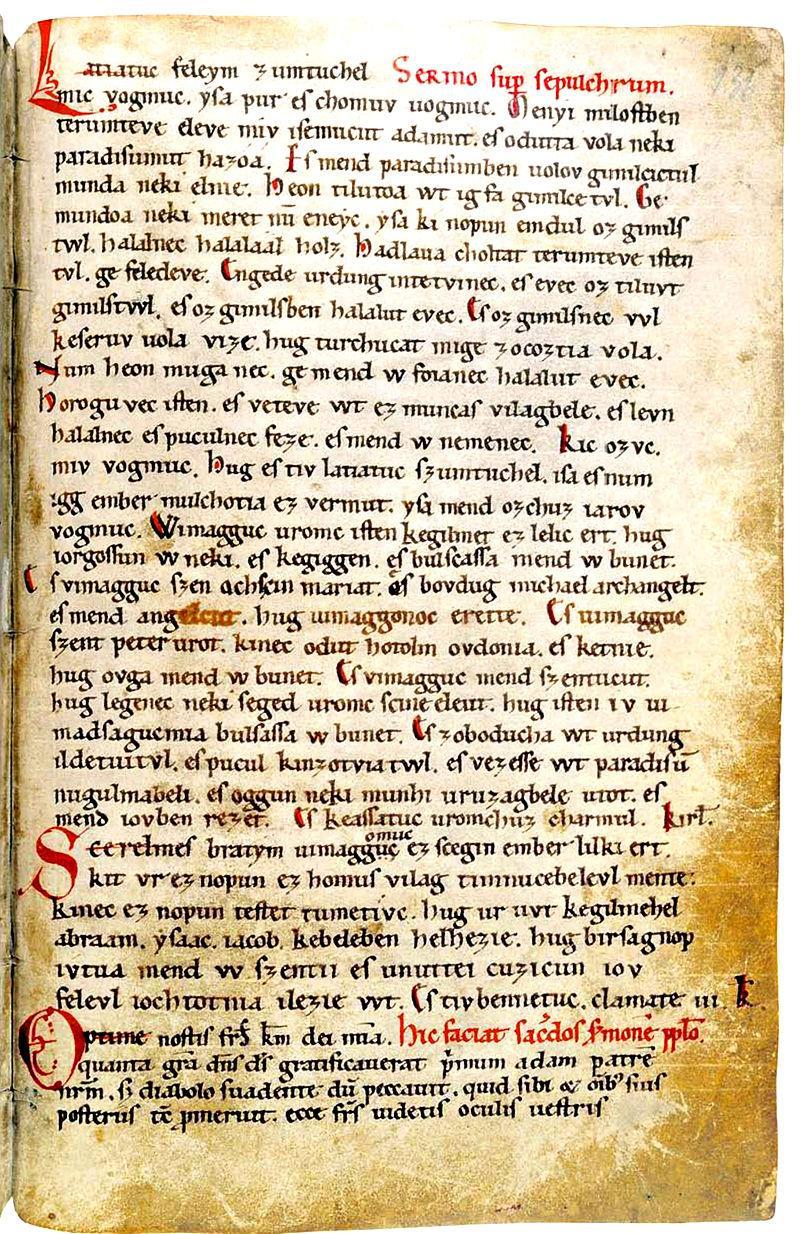 Latiatuc feleym zumtuchel Sermo sup sepulchrum.
mic vogmuc. ysa pur es chomuv uogmuc. Menyi milostben
terumteve eleve miv isemucut adamut. es odutta vola neki
paradisumut hazoa. Es mend paradisumben uolov gimilcictul
munda neki elnie. Heon tilutoa wt ig fa gimilce tvl. Ge
mundoa neki meret nū eneyc. ysa ki nopun emdul oz gimils
twl. halalnec halalaal holz. Hadlaua choltat terumteve isten
tvl. ge feledeve. Engede urdung intetvinec. es evec oz tiluvt
gimilstwl. es oz gimilsben halalut evec. Es oz gimilsnec vvl
keseruv uola vize. hug turchucat mige zocoztia vola.
Num heon muga nec. ge mend w foianec halalut evec.
Horoguvec isten. es veteve wt ez muncas vilagbele. es levn
halalnec es puculnec feze. es mend w nemenec. Kic ozvc.
miv vogmuc. Hug es tiv latiatuv szumtuchel. isa es num
igg ember mulchotia ez vermut. ysa mend ozchuz iarov
vogmuc. Wimagguc uromc isten kegilmet ez lelic ert. hug
iorgossun w neki. es kegiggen. es bulscassa mend w bunet.
Es vimagguc szen achscin mariat. es bovdug michael archangelt.
es mend angelcut. hug uimaggonoc erette. Es uimagguc
szent peter urot. kinec odut hotolm ovdonia. es ketnie.
hug ovga mend w bunet. Es vimagguc mend szentucut.
hug legenec neki seged uromc scine eleut. hug isten iv ui
madsagucmia bulsassa w bunet. Es zoboducha wt urdung
ildetuitvl. es pucul kinzotviatwl. es vezesse wt paradisū
nugulmabeli. es oggun neki munhi uruzagbele utot. es
mend iovben rezet. Es keassatuc uromchuz charmul. kirl.
Scerelmes bratym uimagg omuc ez scegin ember lilki ert.
kit vr ez nopun ez homus vilag timnucebelevl mente.
kinec ez nopun testet tumetivc. hug ur uvt kegilmehel
abraam. ysaac. iacob. kebeleben helhezie. hug birsagnop
ivtua mend w szentii es unuttei cuzicun iov
felevl iochtotnia ilezie wt. Es tiv bennetuc. clamate iii. k.
Optime nostis frs km dei mia. hic faciat sacdos smonē pplo.
quanta gra dns ds gratificauerat pmum adam patrē
nrm. s; diabolo suadente dū peccauit. quid sibi & oib; suis
posteris tc pmeruit. ecce frs uidetis oculis uestris